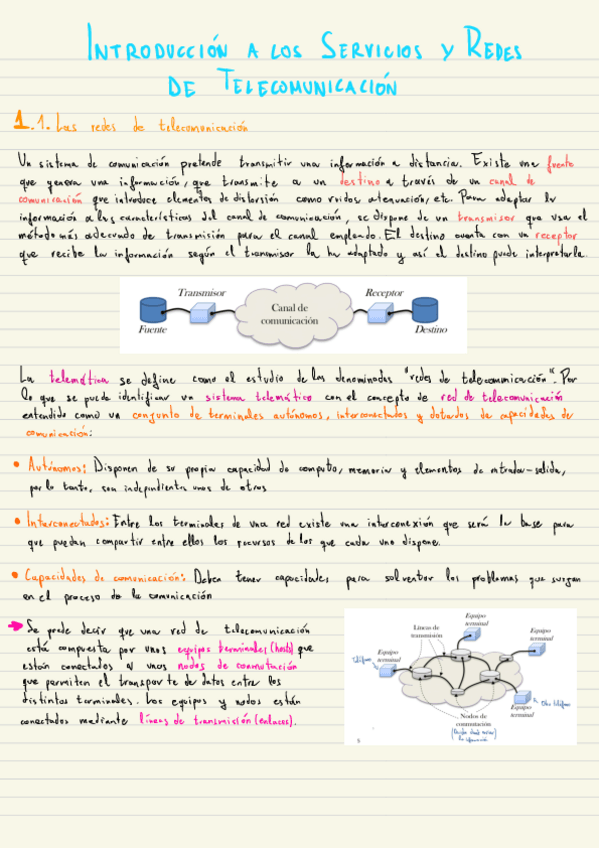 INTRODUCCIÓN A LOS SERVICIOS Y REDES
DE TELECOMUNICACIÓN
1.1. Las redes de telecomunicación
Un sistema de comunicación pretende transmitir una información a distancia. Existe una fuente
que genera una información, que transmite a un destino a través de un canal de
comunicación que introduce elementos de distorsión como ruidos, atenuación, etc. Para adaptar la
información a las características del canal de comunicación, se dispone de un transmisor que usa el
método más adecuado de transmisión para el canal empleado. El destino cuenta con un receptor
que recibe la información según el transmisor la ha adaptado y así el destino puede interpretarla.
Transmisor
Receptor
Canal de
comunicación
Fuente
Destino
La telemática se define como el estudio de las denominadas "redes de telecomunicación". Por
lo que se puede identificar un sistema telemático con el concepto de red de telecomunicación
entendido como un conjunto de terminales autónomos, interconectados y dotados de capacidades de
comunicación:
• Autónomos: Disponen de su propia capacidad de computo, memoria y elementos de entrada-salida,
por lo tanto, son independientes unos de otros
• Interconectados: Entre los terminales de una red existe una interconexión que será la base para
que puedan compartir entre ellos los recursos de los que cada uno dispone.
• Capacidades de comunicación: Deben tener capacidades para solventar los problemas que surgan
en el proceso de la comunicación
→ Se puede decir que una red de telecomunicación
está compuesta por unos equipos terminales (hosts) que
están conectados a unos nodos de conmutación
que permiten el transporte de datos entre los
distintos terminales. Los equipos y nodos están
conectados mediante líneas de transmisión (enlaces).
Equipo
terminal
Líneas de
transmisión
Equipo
terminal
Equipo
terminal
Teléfono
Otro teléfono
Equipo
terminal
Nodos de
conmutación